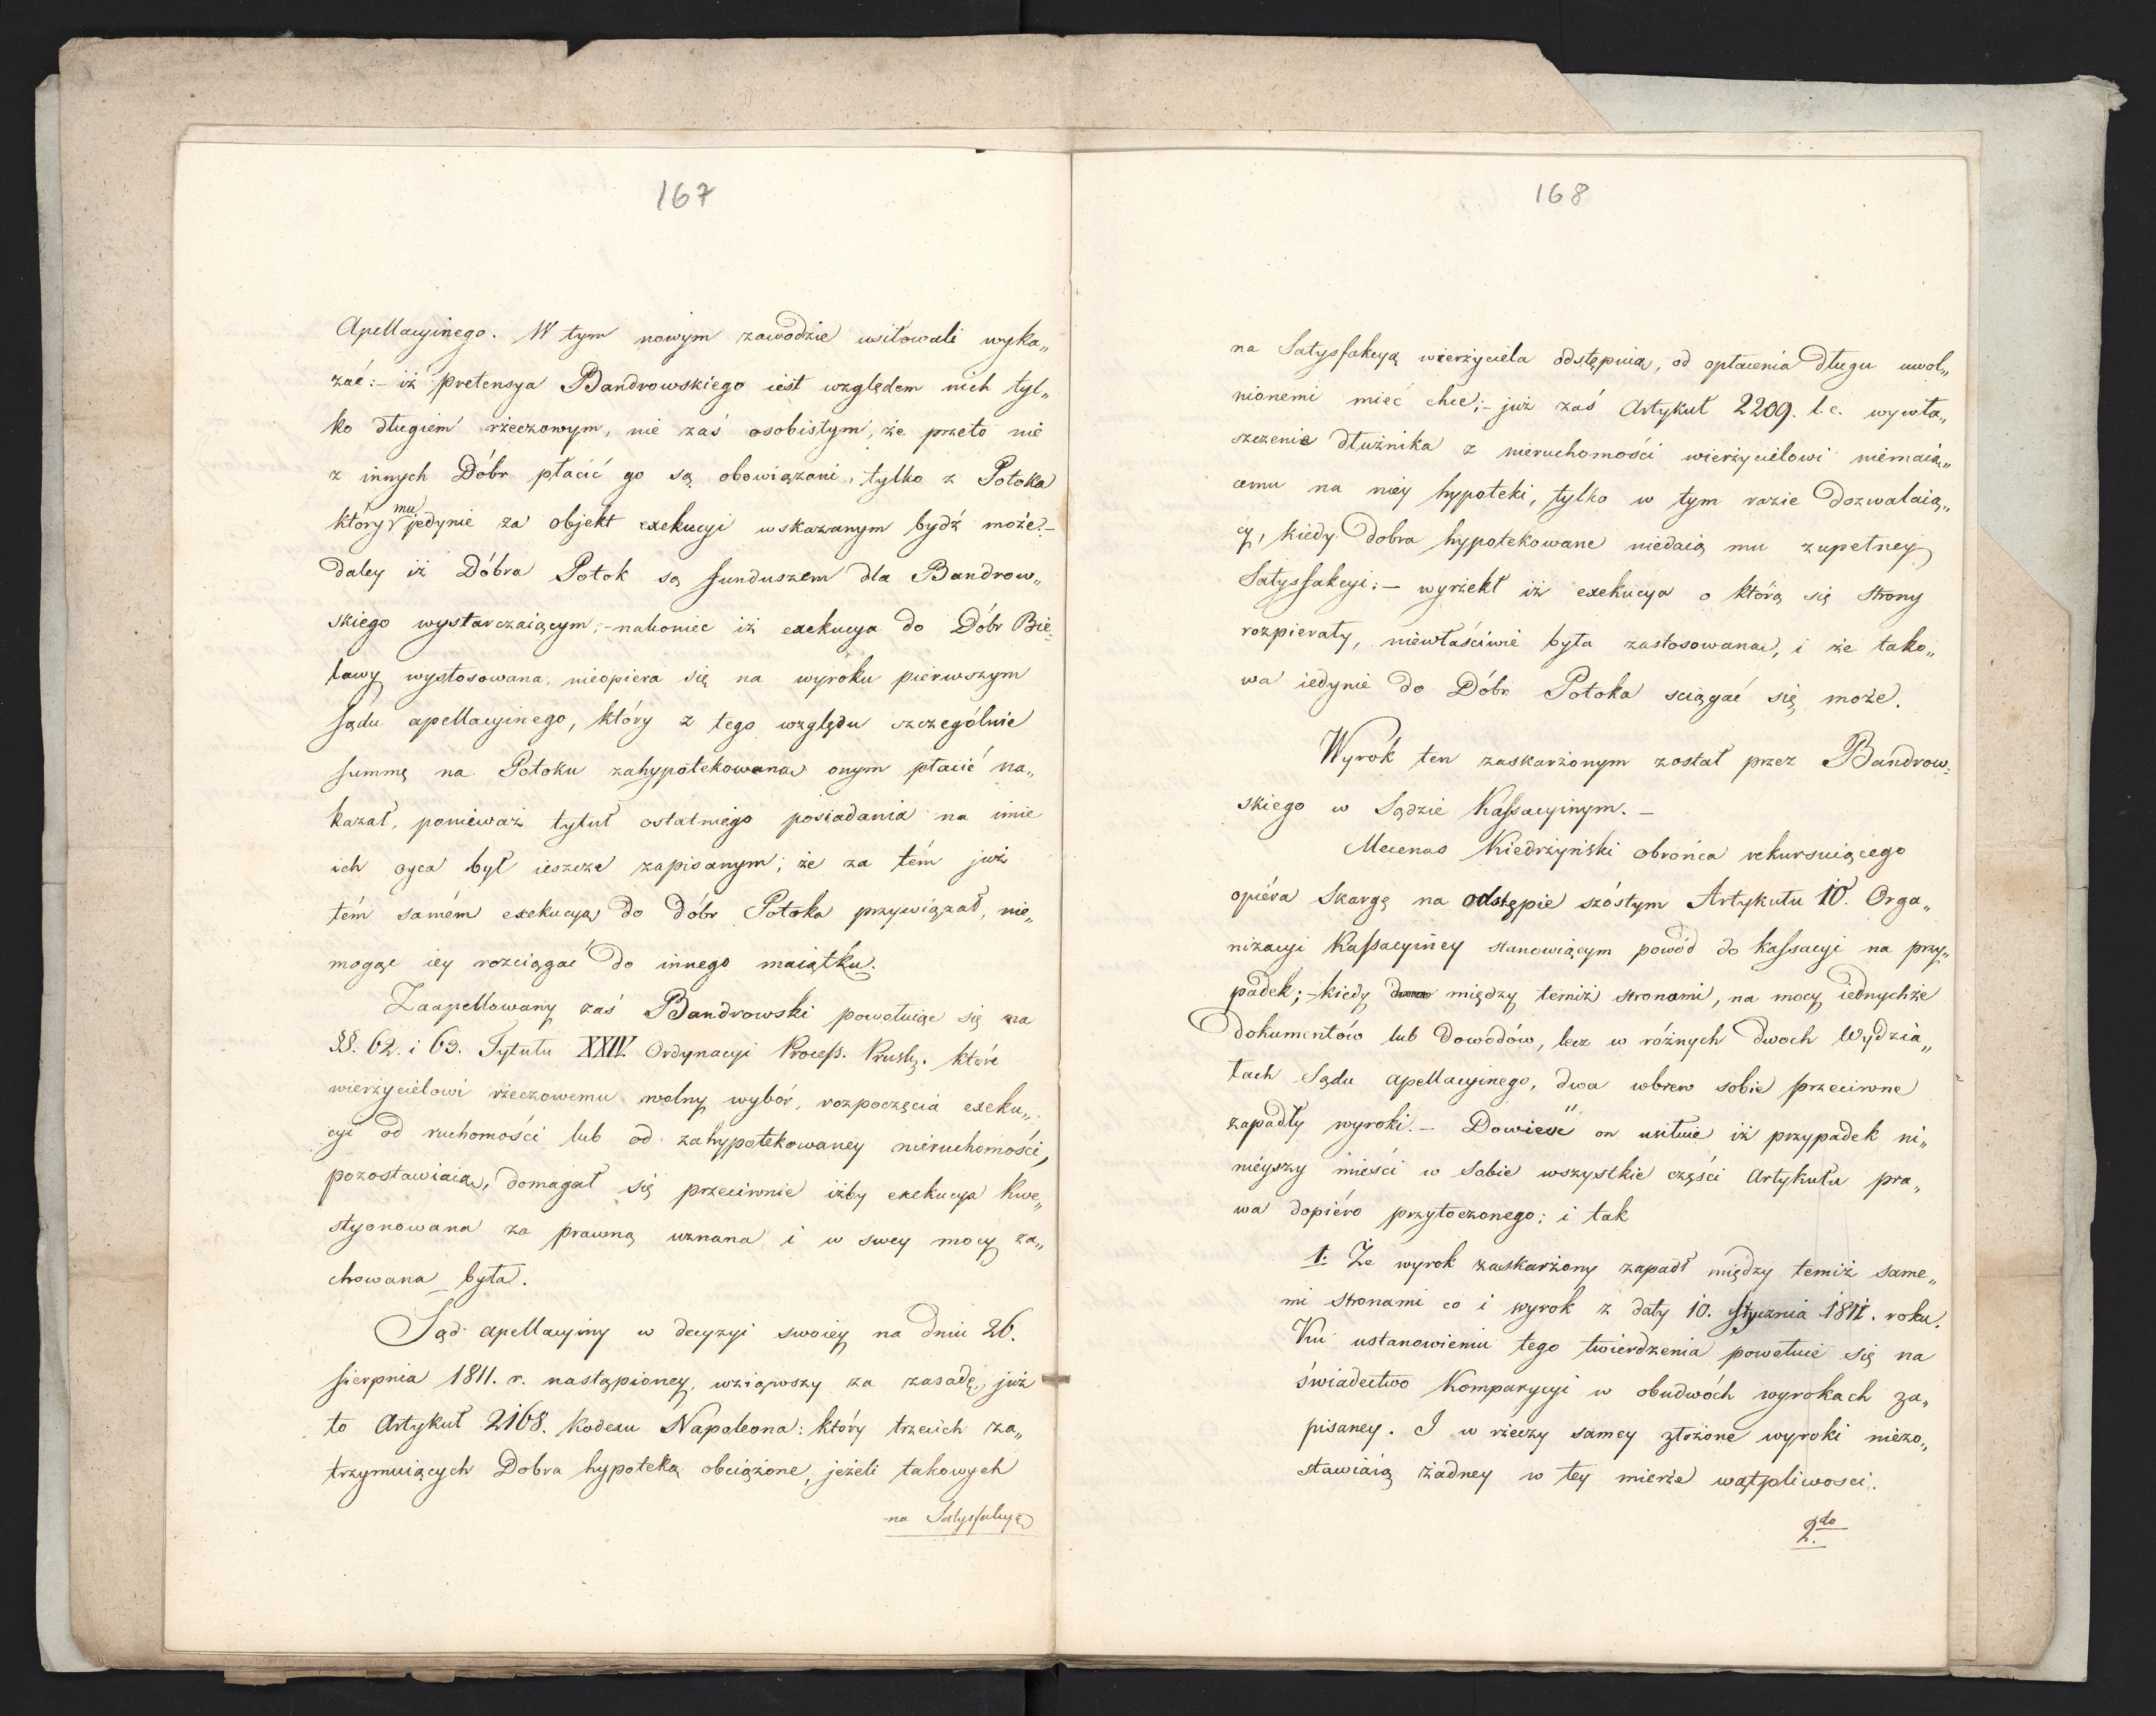 167
Apellacyinego. W tym nowym zawodzie usiłowali wyka„
zać:– iż pretensya Bandrowskiego iest względem nich tyl„
ko długiem rzeczowym, nie zaś osobistym, że przeto nie
z innych Dóbr płacić go są obowiązani, tylko z Potoka
który mu jedynie za objekt exekucyi wskazanym bydź może.–
daley iż Dobra Potok są funduszem dla Bandrow„
skiego wystarczaiącym;– nakoniec iż exekucya do Dóbr Bie„
lawy wystosowana, nieopiera się na wyroku pierwszym
Sądu apellacyinego, który z tego względu szczególnie
summę na Potoku zahypotekowaną onym płacić na„
kazał, ponieważ tytuł ostatniego posiadania na imie
ich oyca był ieszcze zapisanym; że za tém już
tém samém exekucyą do dóbr Potoka przywiązał, nie„
mogąc iey rozciągać do innego maiątku.
Zaapellowany zaś Bandrowski powołuiąc się na
§§. 62. i 63. Tytułu XXIV. Ordynacyi Process. Prusky. które
wierzycielowi rzeczowemu wolny wybór, rozpoczęcia exeku„
cyi od ruchomości lub od zahypotekowaney nieruchomości,
pozostawiaią, domagał się przeciwnie iżby exekucya kwe„
styonowana za prawną uznana i w swey mocy za„
chowana była.
Sąd apellacyiny w decyzyi swoiey na dniu 26.
sierpnia 1811. r. nastąpioney, wziąwszy za zasadę, już
to Artykuł 2168. Kodexu Napoleona: który trzecich za„
trzymuiących Dobra hypoteką obciążone, jeżeli takowych
na Satysfakcyą
168
na Satysfakcyą wierzyciela odstępuią, od opłacenia długu uwol„
nionemi mieć chce;– już zaś Artykuł 2209. l. c. wywła„
szczenie dłużnika z nieruchomości wierzycielowi niemaią„
cemu na niey hypoteki, tylko w tym razie dozwalaią„
cy, kiedy dobra hypotekowane niedaią mu zupełney
Satysfakcyi:– wyrzekł iż exekucya o którą się strony
rozpierały, niewłaściwie była zastosowaną, i że tako„
wa iedynie do Dóbr Potoka sciągać się może.
Wyrok ten zaskarżonym został przez Bandrow„
skiego w Sądzie Kassacyinym.–
Mecenas Kiedrzyński obrońca rekursuiącego
opiéra Skargę na odstępie szóstym Artykułu 10. Orga„
nizacyi Kassacyiney stanowiącym powód do kassacyi na przy„
padek;– kiedy między temiż stronami, na mocy iednychże
dokumentów lub dowodów, lecz w różnych dwoch Wydzia„
łach Sądu apellacyinego, dwa wbrew sobie przeciwne
zapadły wyroki.– Dowieść on usiłuie iż przypadek ni„
nieyszy mieści w sobie wszystkie części Artykułu pra„
wa dopiéro przytoczonego; i tak
1. Że wyrok zaskarżony zapadł między temiż same„
mi stronami co i wyrok z daty 10. stycznia 1811. roku.
Ku ustanowieniu tego twierdzenia powołuie się na
świadectwo Komparycyi w obudwóch wyrokach za„
pisaney. I w rzeczy samey złożone wyroki niezo„
stawiaią żadney w tey mierze wątpliwosci.
2do